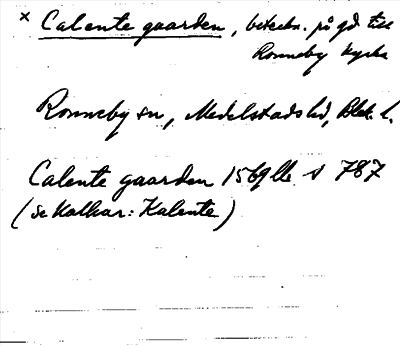 × Calente gaarden, beteckn. på gd till
Ronneby kyrka
Ronneby sn, Medelstads hd, Blek. l.
Calente gaarden 1569 lle s 787
(se Kalkar: Kalente)